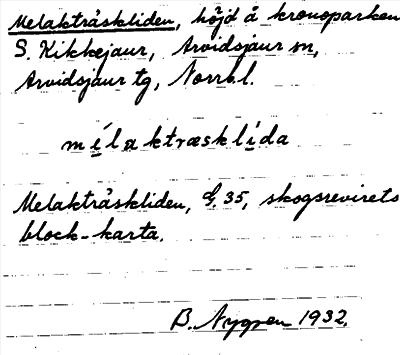 Melakträskliden, höjd å kronoparken
S. Kikkejaur, Arvidsjaur sn,
Arvidsjaur tg, Norrb.l.
mílaktræsklída
Melakträskliden, 35, skogsrevirets
block-karta.
B. Nygren 1932.